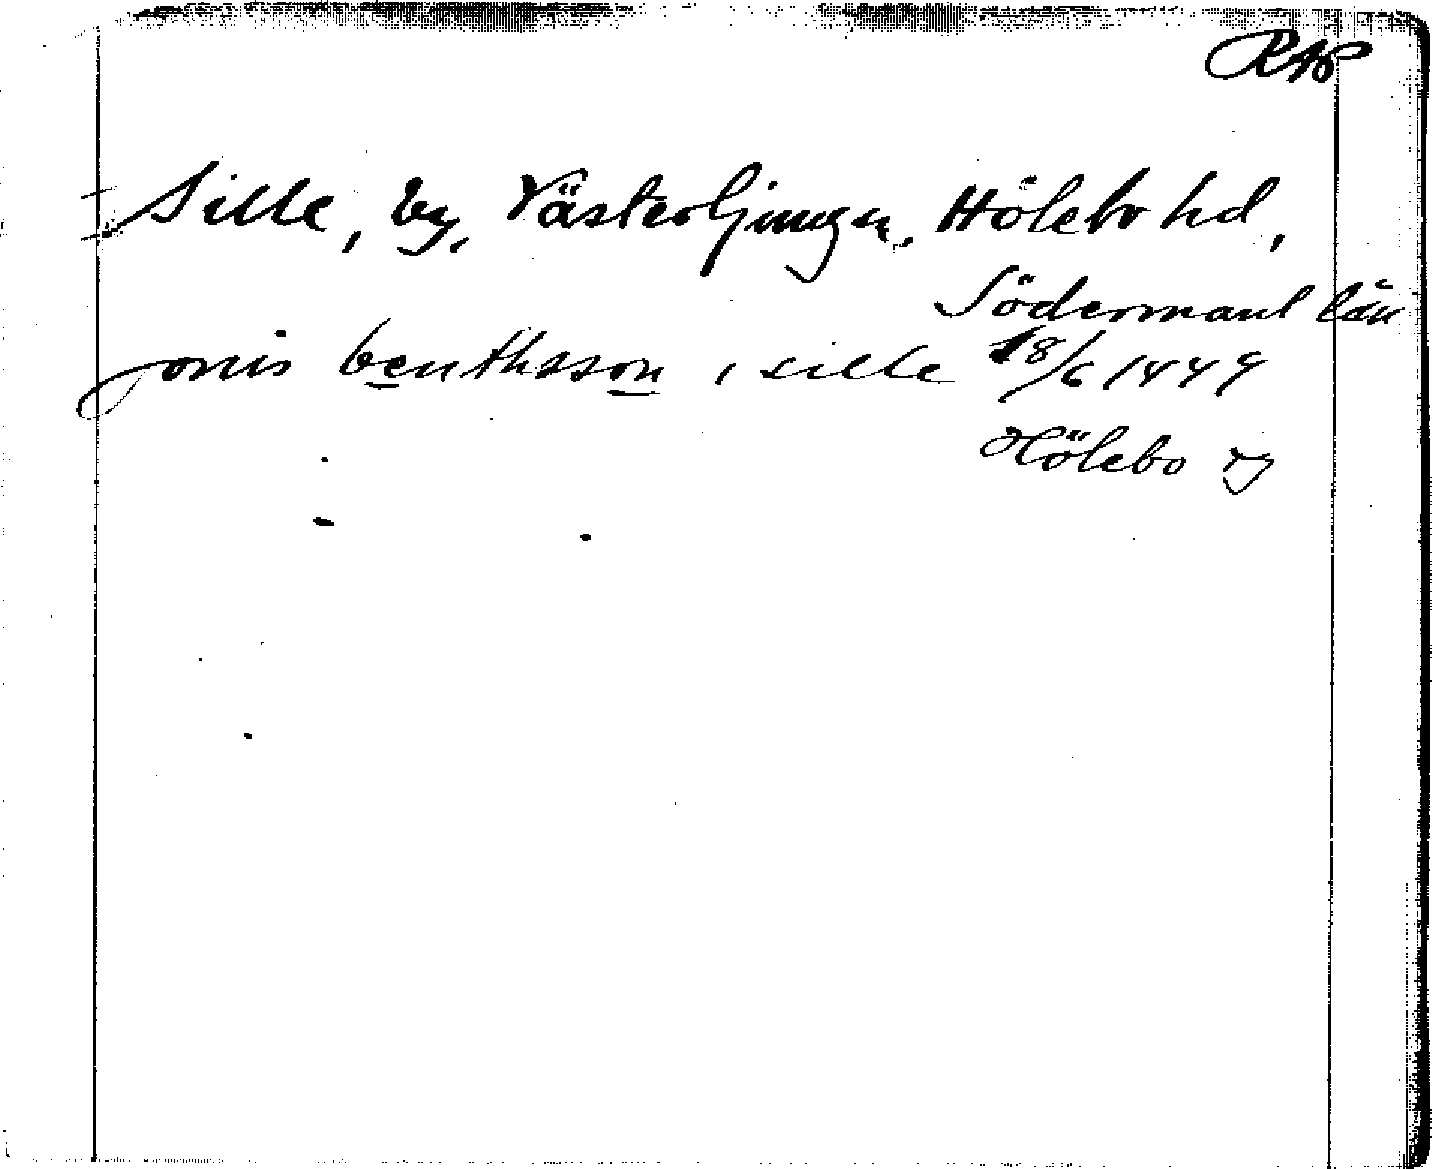 RAP
Sille, by, Västerljungen, Hölebo hd,
Södermanl län
jonis benthsson i sille 18/6 1449
Hölebo